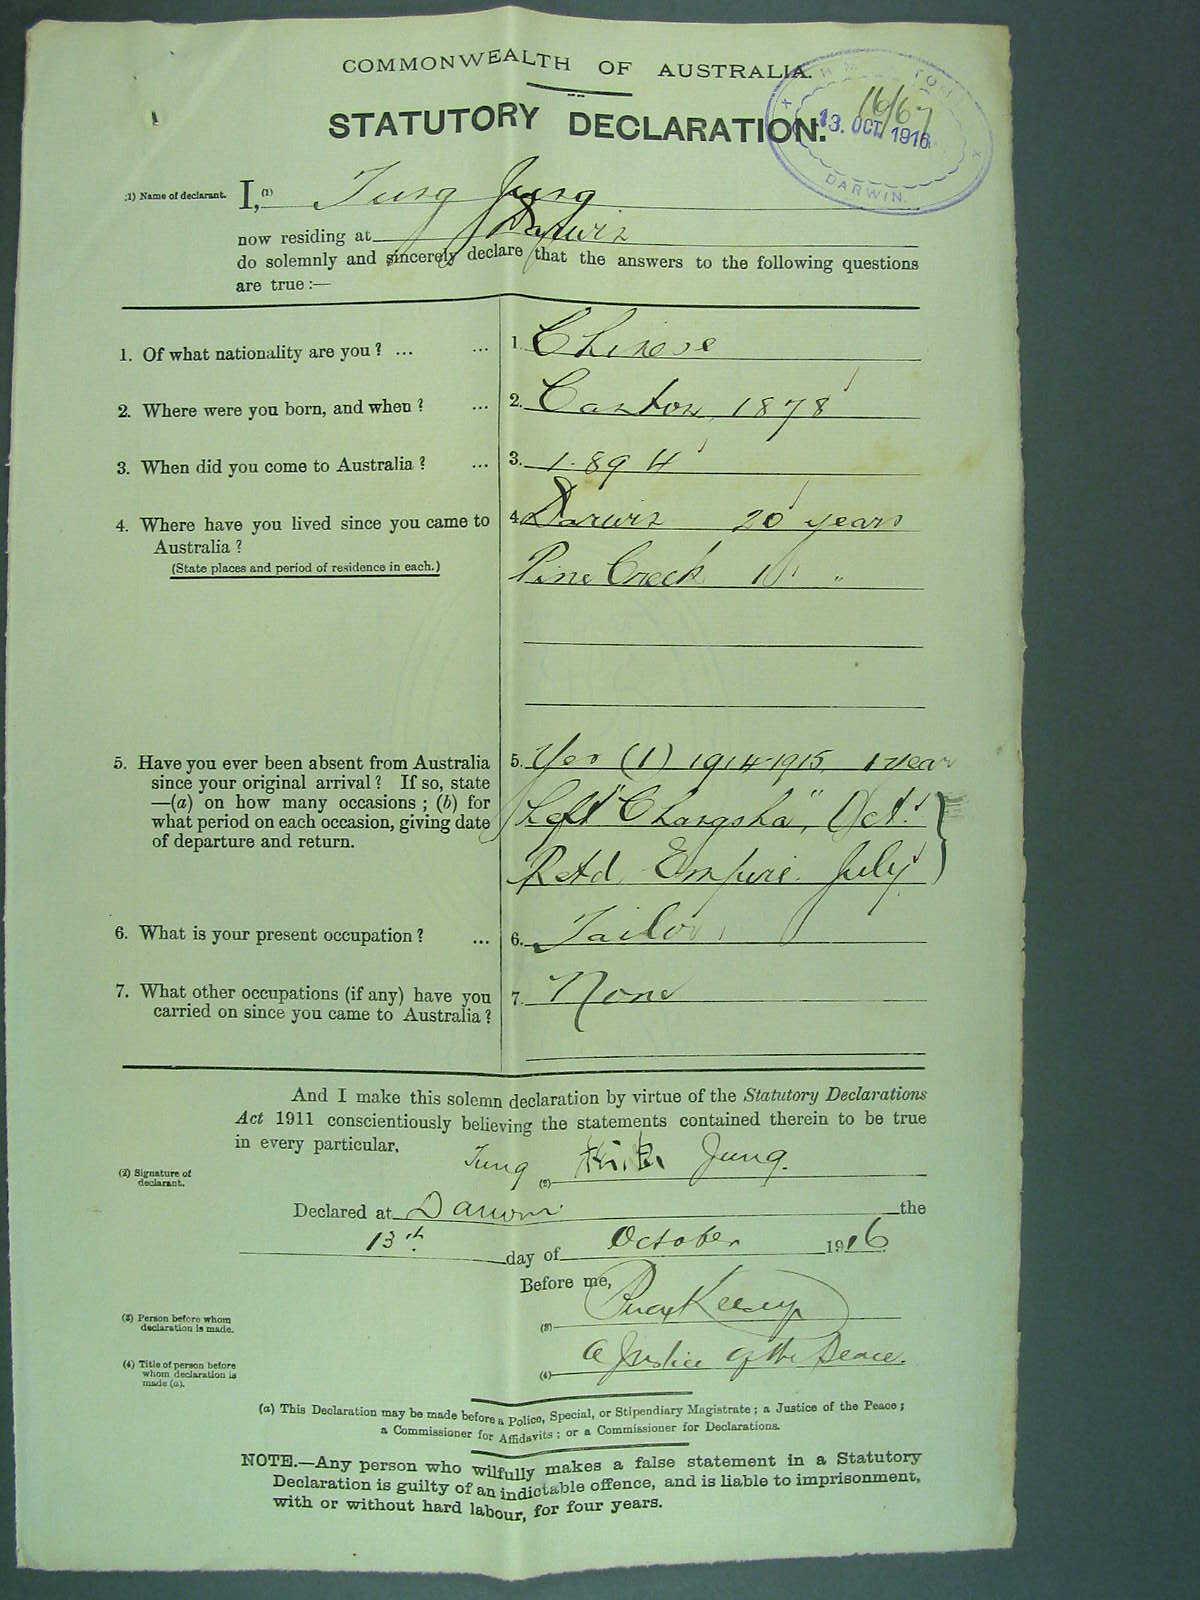 COMMONWEALTH OF AUSTRALIA.
STATUTORY DECLARATION.
16/67
13. OCT. 1916
DARWIN.
(1) Name of declarant. I, (1) Jung Jung
now residing at Darwin
do solemnly and sincerely declare that the answers to the following questions
are true :—
1. Of what nationality are you ? ... ... 1. Chinese
2. Where were you born, and when ? ... 2. Canton, 1878
3. When did you come to Australia ? ... 3. 1894
4. Where have you lived since you came to 4. Darwin 20 years
Australia ?
(State places and period of residence in each.) Pine Creek 1 "
5. Have you ever been absent from Australia 5. Yes (1) 1914-1915 1 year
since your original arrival ? If so, state
—(a) on how many occasions ; (b) for Left "Changsha", Oct.
what period on each occasion, giving date
of departure and return. Retd. Empire. July
6. What is your present occupation ? ... 6. Tailor
7. What other occupations (if any) have you 7. None
carried on since you came to Australia ?
And I make this solemn declaration by virtue of the Statutory Declarations
Act 1911 conscientiously believing the statements contained therein to be true
in every particular.
(2) Signature of
declarant. Jung (2) Jung.
Declared at Darwin the
13th. day of October 1916
Before me,
(3) Person before whom
declaration is made. (3)
(4) Title of person before
whom declaration is
made (a). (4) A Justice of the Peace.
(a) This Declaration may be made before a Police, Special, or Stipendiary Magistrate ; a Justice of the Peace ;
a Commissioner for Affidavits ; or a Commissioner for Declarations.
NOTE.—Any person who wilfully makes a false statement in a Statutory
Declaration is guilty of an indictable offence, and is liable to imprisonment,
with or without hard labour, for four years.